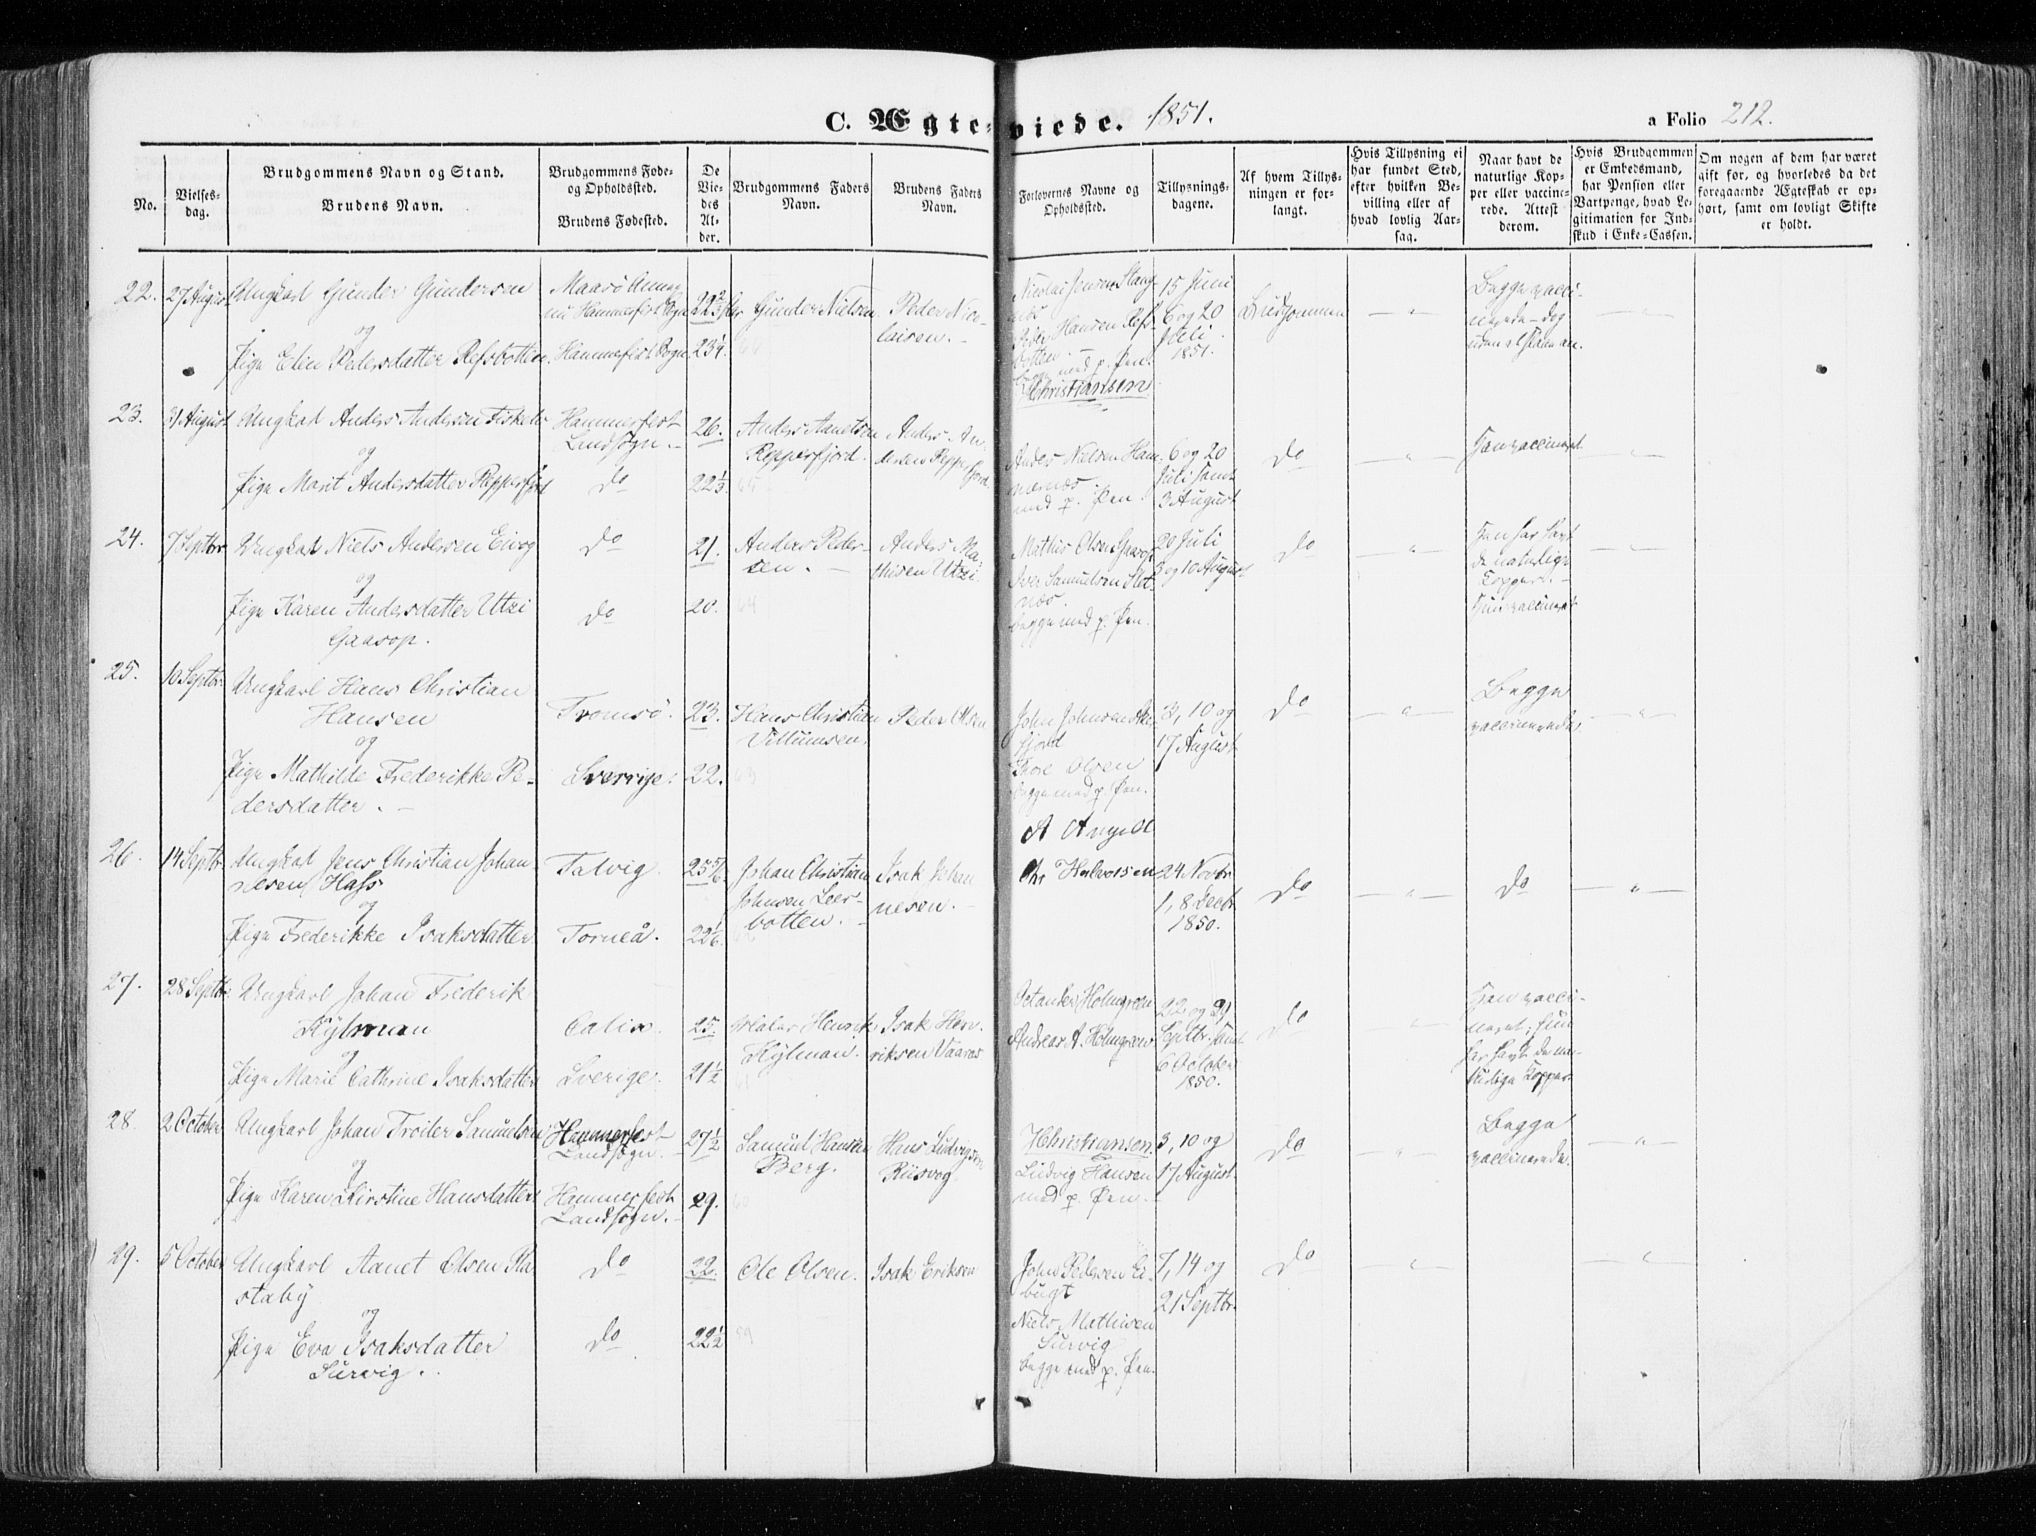 C. Ægteviede. 1851.
a Folio 212.
No.
Vielses-
dag.
Brudgommens Navn og Stand.
Brudens Navn.
Brudgommens Føde-
og Opholdssted.
Brudens Fødested.
De
Vie-
des
Al-
der.
Brudgommens Faders
Navn.
Brudens Faders
Navn.
Forlovernes Navne og
Opholdssted.
Tillysnings-
dagene.
Af hvem Tillys-
ningen er for-
langt.
Hvis Tillysning ei
har fundet Sted,
efter hvilken Be-
villing eller af
hvad lovlig Aar-
sag.
Naar havt de
naturlige Kop-
per eller vaccine-
rede. Attest
derom.
Hvis Brudgommen
er Embedsmand,
har Pension eller
Vartpenge, hvad Le-
gitimation for Ind-
skud i Enke-Cassen.
Om nogen af dem har været
gift før, og hvorledes da det
foregaaende Ægteskab er op-
hørt, samt om lovligt Skifte
er holdt.
22. 27 August
Ungkarl Gunder Gundersen
og
Pige Elen Pedersdatter Refsbotten.
Hammerfest Sogn
Hammerfest Sogn.
23 1/4.
Gunder Nielsen
Peder Nico-
laisen.
Nicolai Jensen Slang-
næs
Peder Hansen Refs-
botten.
begge med p. Pen.
Christiansen
15 Juni
6 og 20
Juli
1851.
Brudgommen
Begge vacci-
nerede - dog
23. 31 August
Ungkarl Anders Andersen Fisker
og
Pige Marit Andersdatter Repperfjord
Hammerfest
Landsogn.
do
26.
22 1/3.
Anders Aanetsen
Repperfjord.
Anders An-
dersen Repper
fjord.
Anders Nielsen Ham-
mernæs.
med p. Pen
6 og 20
Juli samt
3 August
do
24. 7 Septbr.
Ungkarl Niels Andersen Eivog
og
Pige Karen Andersdatter Utzi
Gaasop.
do
do
21.
20.
64
Anders Peder-
sen.
Anders Ma-
thisen Utzi.
Mathis Olsen Gaasop
Iver Samuelsen Slot-
næs.
begge med p. Pen.
20 Juli
3 og 10 August
do
Han har havt
de naturlige
Kopper.
Hun vaccineret
25. 10 Septbr.
Ungkarl Hans Christian
Hansen
og
Pige Mathilde Frederikke Pe-
dersdatter.
Tromsö.
Sverrige.
23.
22.
63
Hans Christian
Villumsen.
Peder Olsen
John Johnsen
fjord
Olsen
begge med p. Pen.
3, 10 og
17 August
do
Begge
vaccinerede
26. 14 Septbr.
Ungkarl Jens Christian Johan-
nesen Hass
og
Pige Frederikke Isaksdatter
Talvig.
Torneå.
25 5/6.
22 1/6.
Johan Christian
Johnsen Leer-
botten.
Isak Johan
nesen.
Chr Halvorsen
24 Novbr
1, 8 Decbr
1850.
do
do
27. 28 Septbr.
Ungkarl Johan Frederik
Kylman
og
Pige Marie Cathrine Isaksdatter
Calix.
Sverige.
25.
21 1/2
61
Henrik
Kylman.
Isak Hen-
riksen Vaara.
Octander Holmgreen
Andreas A. Holmgreen
22 og 29
Septbr. samt
6 October
1850.
do
Han vacci-
neret; Hun
har havt de na-
turlige Kopper.
28. 2 October
Ungkarl Johan Troiler Samuelsen
og
Pige Karen Kirstine Hansdatter
Hammerfest
Landsogn.
Hammerfest
Landsogn.
27 1/2
29.
60
Samuel Hansen
Berg.
Hans Ludvigsen
Riisvog
Christiansen.
Ludvig Hansen
med p. Pen.
3, 10 og
17 August.
do
Begge
vaccinerede.
29. 5 October
Ungkarl Aanet Olsen Ra
staby
og
Pige Eva Isaksdatter
Survig.
do
do
22.
22 1/2
59
Ole Olsen.
Isak Eriksen
John Pedersen Ei-
bugt
Niels Mathisen
Survig
begge med p. Pen.
7, 14 og
21 Septbr.
do